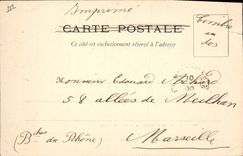 Imprimé
CARTE POSTALE
Timbre
au
dos
Ce côté est exclusivement réservé à l'adresse
Monsieur Edouard
58 allées de Meilhan
Marseille
(Bches du Rhône)